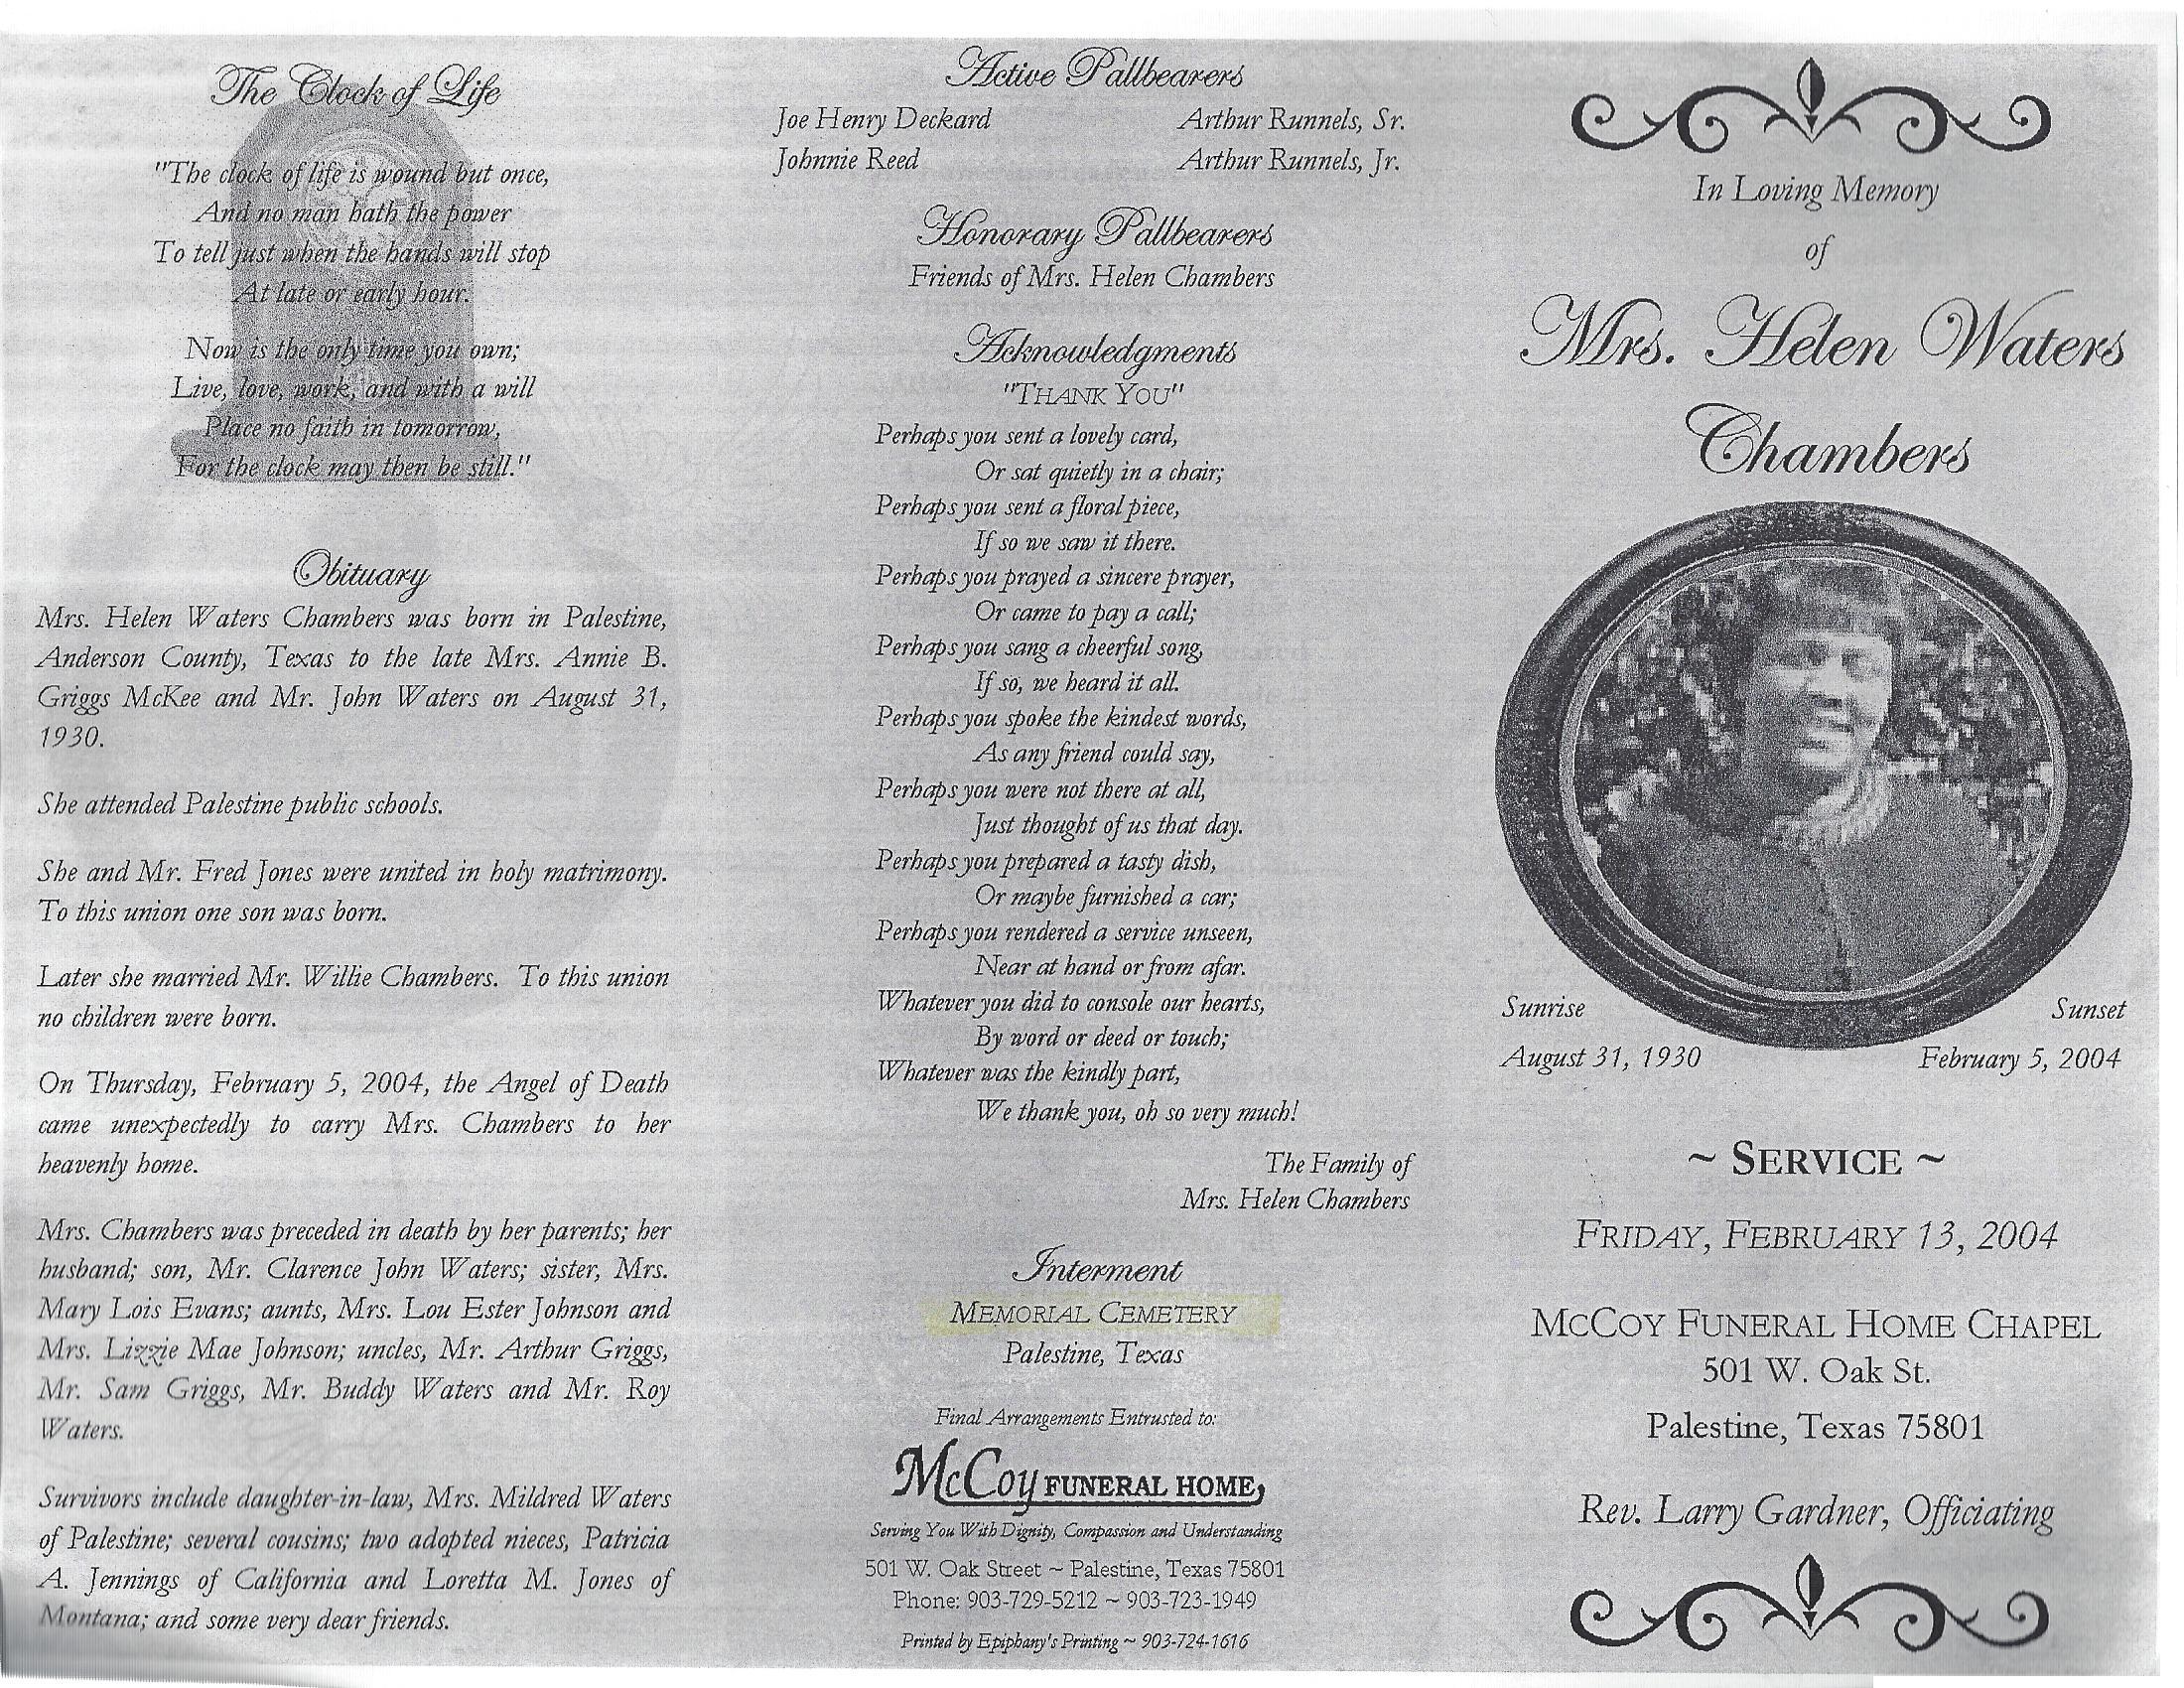 The Clock of Life
"The clock of life is wound but once,
And no man hath the power
To tell just when the hands will stop
At late or early hour.
Now is the only time you own;
Live, love, work, and with a will
Place no faith in tomorrow,
For the clock may then be still."
Obituary
Mrs. Helen Waters Chambers was born in Palestine,
Anderson County, Texas to the late Mrs. Annie B.
Griggs McKee and Mr. John Waters on August 31,
1930.
She attended Palestine public schools.
She and Mr. Fred Jones were united in holy matrimony.
To this union one son was born.
Later she married Mr. Willie Chambers. To this union
no children were born.
On Thursday, February 5, 2004, the Angel of Death
came unexpectedly to carry Mrs. Chambers to her
heavenly home.
Mrs. Chambers was preceded in death by her parents; her
husband; son, Mr. Clarence John Waters; sister, Mrs.
Mary Lois Evans; aunts, Mrs. Lou Ester Johnson and
Mrs. Lizzie Mae Johnson; uncles, Mr. Arthur Griggs,
Mr. Sam Griggs, Mr. Buddy Waters and Mr. Roy
Waters.
Survivors include daughter-in-law, Mrs. Mildred Waters
of Palestine; several cousins; two adopted nieces, Patricia
A. Jennings of California and Loretta M. Jones of
Montana; and some very dear friends.
Active Pallbearers
Joe Henry Deckard Arthur Runnels, Sr.
Johnnie Reed Arthur Runnels, Jr.
Honorary Pallbearers
Friends of Mrs. Helen Chambers
Acknowledgments
"THANK YOU"
Perhaps you sent a lovely card,
Or sat quietly in a chair;
Perhaps you sent a floral piece,
If so we saw it there.
Perhaps you prayed a sincere prayer,
Or came to pay a call;
Perhaps you sang a cheerful song,
If so, we heard it all.
Perhaps you spoke the kindest words,
As any friend could say,
Perhaps you were not there at all,
Just thought of us that day.
Perhaps you prepared a tasty dish,
Or maybe furnished a car;
Perhaps you rendered a service unseen,
Near at hand or from afar.
Whatever you did to console our hearts,
By word or deed or touch;
Whatever was the kindly part,
We thank you, oh so very much!
The Family of
Mrs. Helen Chambers
Interment
MEMORIAL CEMETERY
Palestine, Texas
Final Arrangements Entrusted to:
McCoy FUNERAL HOME,
Serving You With Dignity, Compassion and Understanding
501 W. Oak Street ~ Palestine, Texas 75801
Phone: 903-729-5212 ~ 903-723-1949
Printed by Epiphany's Printing ~ 903-724-1616
In Loving Memory
of
Mrs. Helen Waters
Chambers
Sunrise Sunset
August 31, 1930 February 5, 2004
~ SERVICE ~
FRIDAY, FEBRUARY 13, 2004
MCCOY FUNERAL HOME CHAPEL
501 W. Oak St.
Palestine, Texas 75801
Rev. Larry Gardner, Officiating